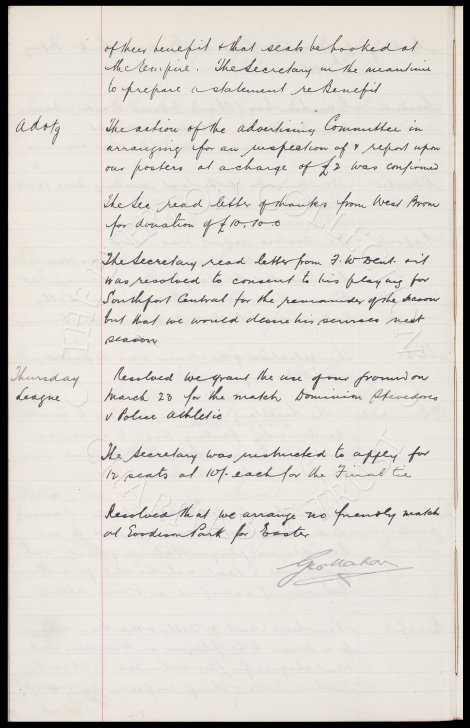 of their benefit & that seats be booked at
the Empire. The Secretary in the meantime
to prepare a statement re Benefit
Advtg
The action of the advertising Committee in
arranging for an inspection of & report upon
our posters at a charge of £2 was confirmed
The Sec read letter of thanks from West Brom
for donation of £10.10.0
The Secretary read letter from F. W Dent. it
was resolved to consent to his playing for
Southport Central for the remainder of the season
but that we would desire his services next
season
Thursday
League
Resolved we grant the use of our ground on
March 23 for the match Dominion Stevedores
v Police Athletic
The Secretary was instructed to apply for
12 seats at 10/- each for the Final tie
Resolved that we arrange no friendly match
at Goodison Park for Easter
Geo Mahon